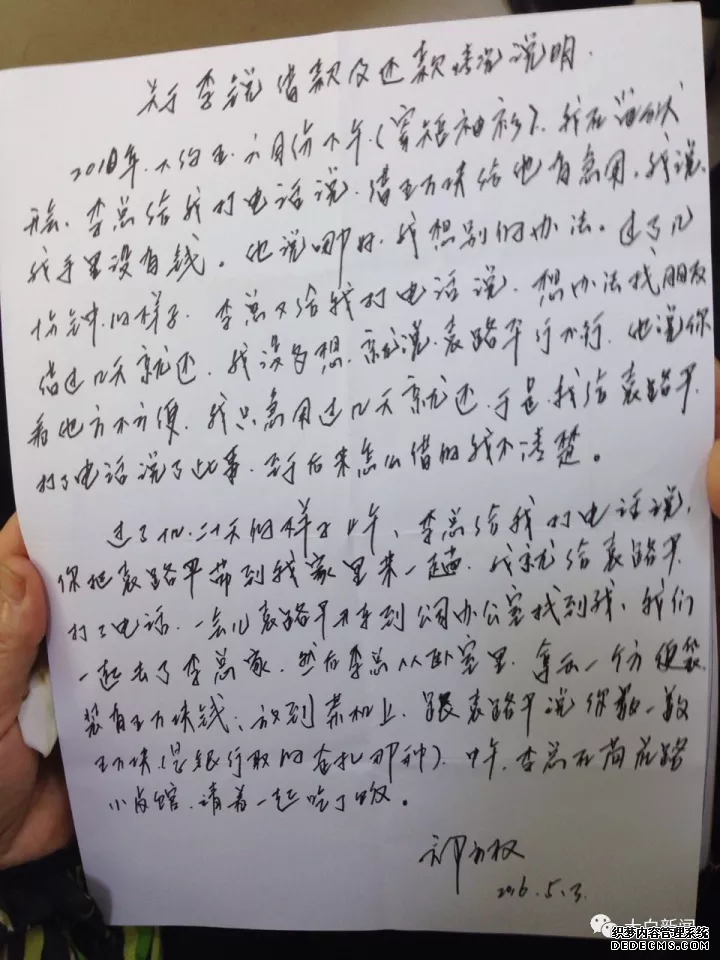 关于李锐借款及还款情况说明.
2010年.大约五.六月份下午.(穿短袖衫).我在
开会.李总给我打电话说.借五万块给他有急用.我说.
我手里没有钱。他说那好.我想别的办法。过了几
十分钟的样子.李总又给我打电话说.想办法找朋友
借过几天就还.我没多想.就说袁路平行不行.他说你
看他方不方便.我只急用过几天就还.于是.我给袁路平.
打了电话说了此事.至于后来怎么借的我不清楚。
过了.二十天的样子上午、李总给我打电话说,
你把袁路平带到我家里来一趟.我就给袁路平.
打了电话.一会儿袁路平开车到公司办公室找到我、我们
一起去了李总家.然后李总从卧室里.拿出一个方便袋
装有五万块钱、放到茶机上.跟袁路平说你数一数
五万块(是银行取的那种).中午.李总在路
小点馆.请着一起吃了饭。
5.3.
大白新闻
织梦内容管理系统
DEDECMS.COM